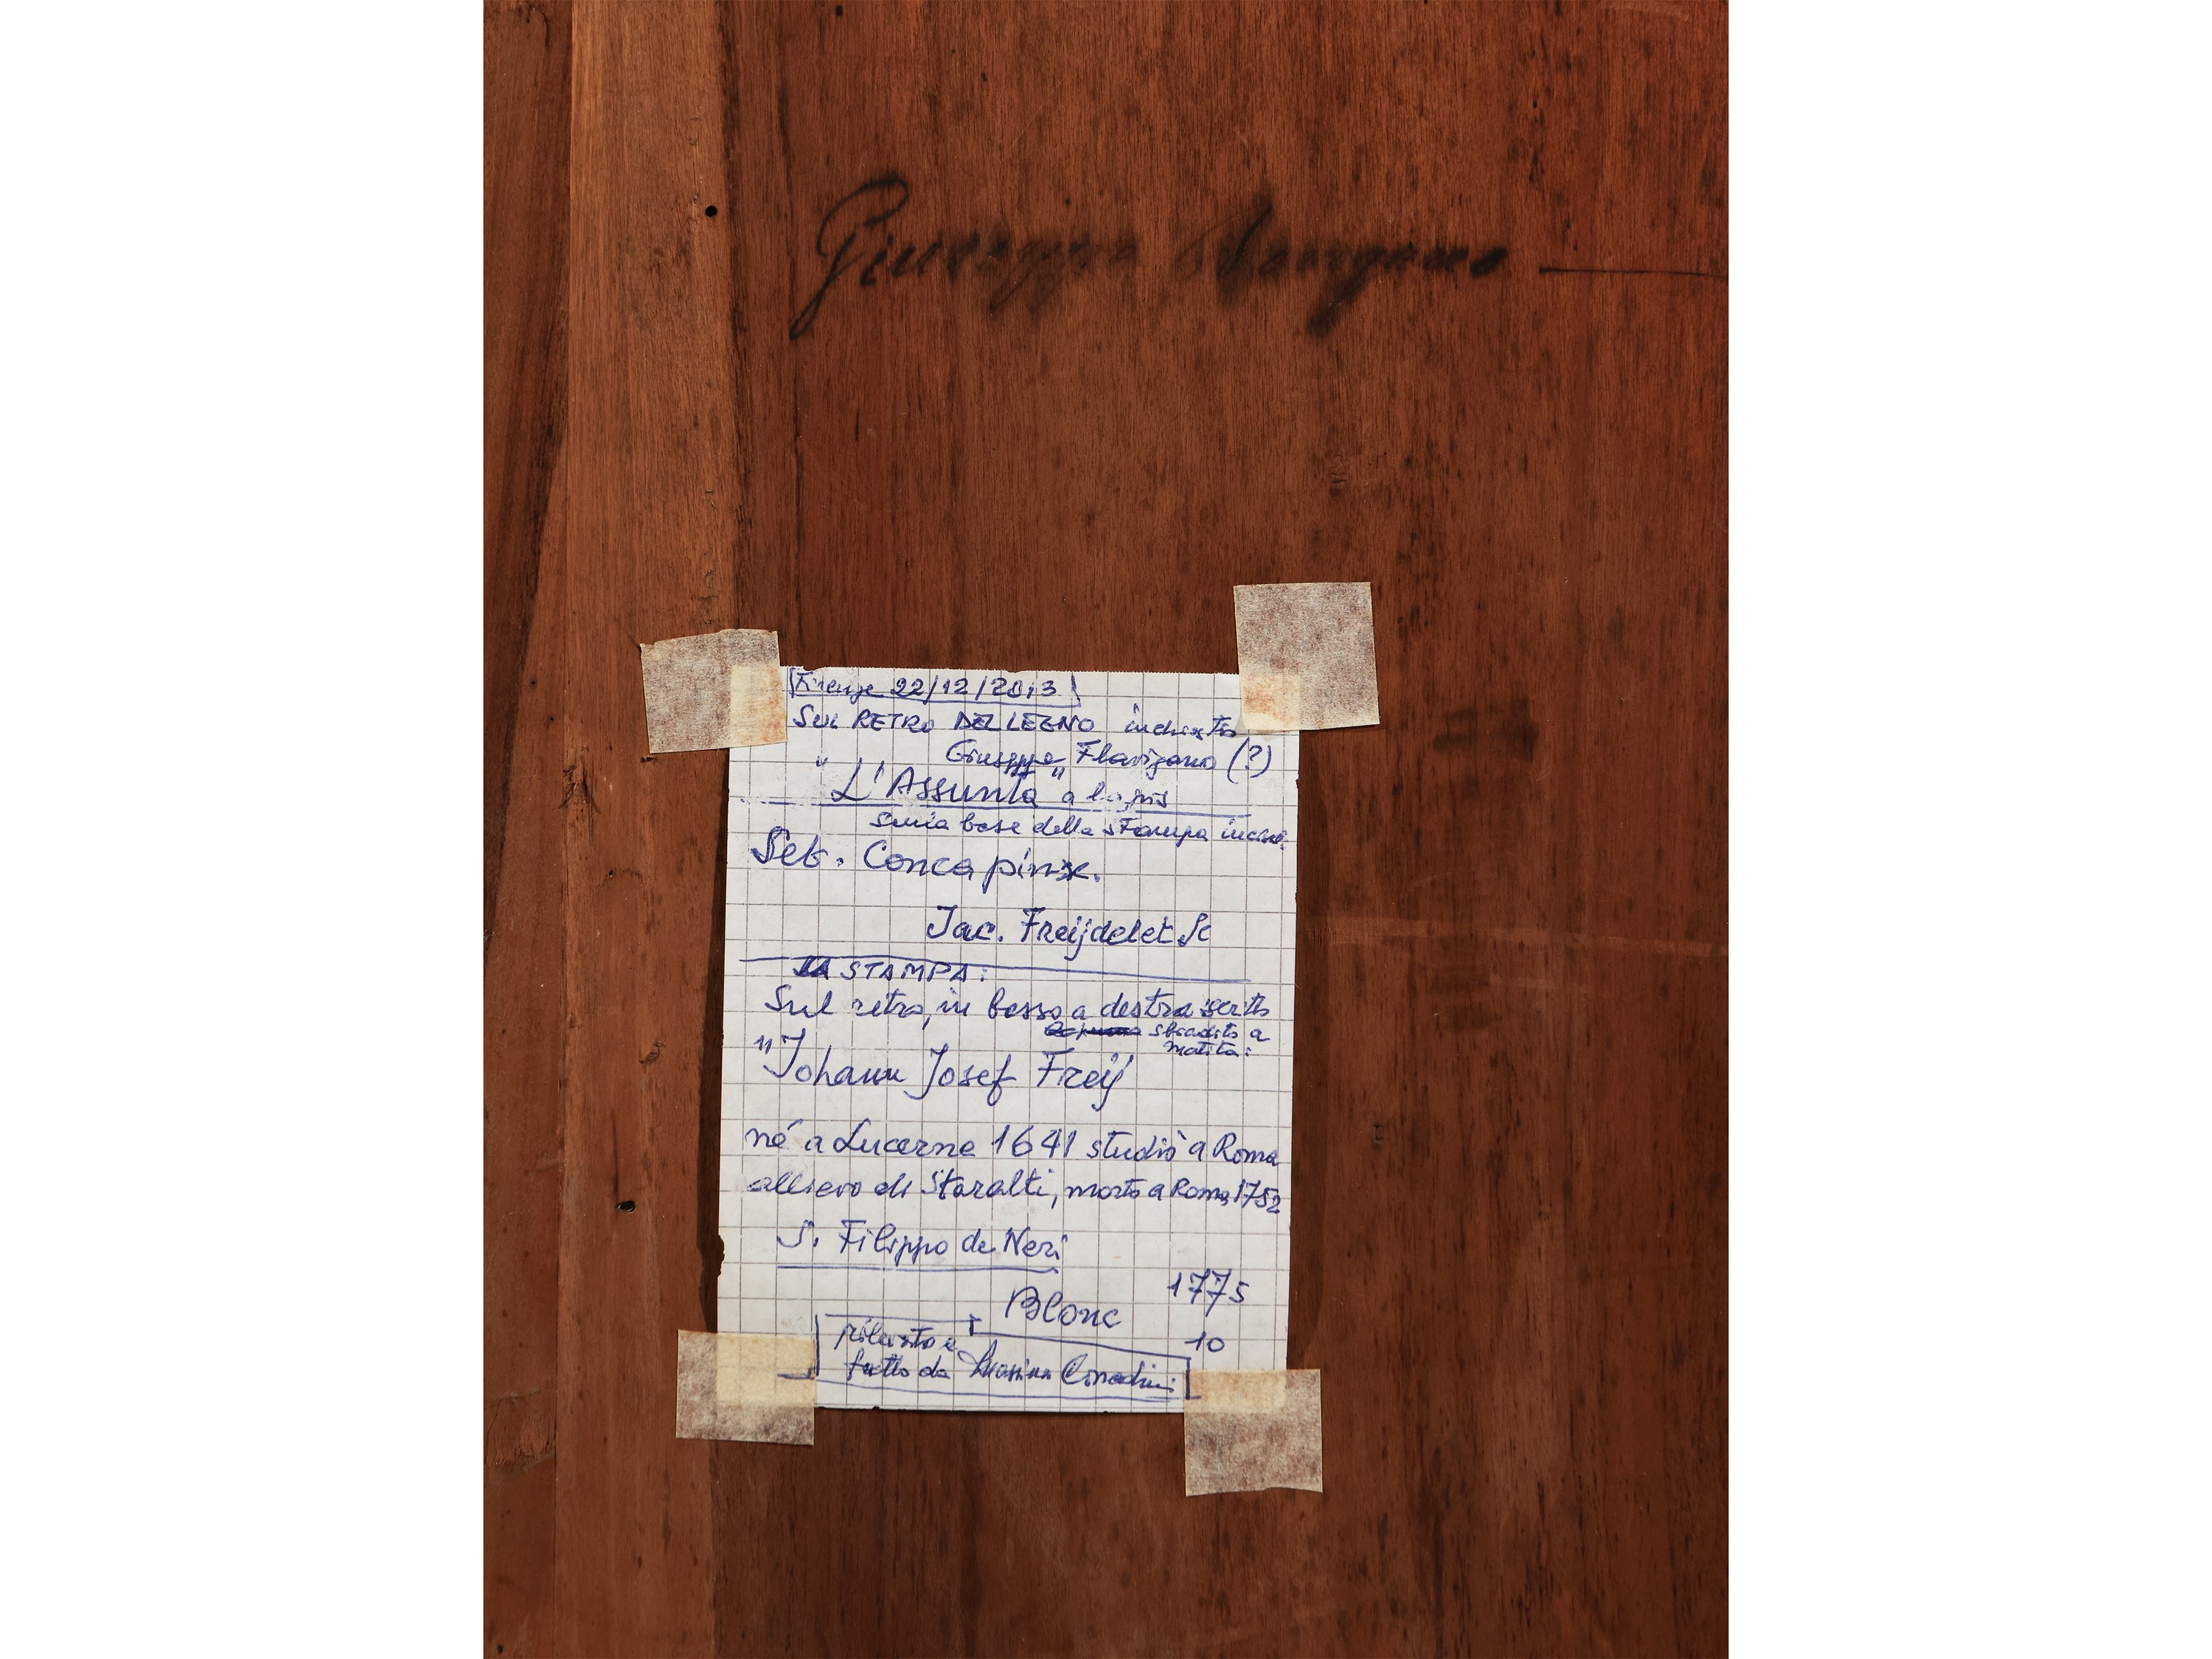 Giuseppe
Firenze 22/12/2013
SUL RETRO DEL LEGNO inchiostro
Giuseppe Flavigano (?)
"L'Assunta" a lapis
sulla base della stampa incis.
Seb. Conca pinx.
Jac. Freij delet Sc
LA STAMPA:
Sul retro, in basso a destra scritto
sbiadito a
matita:
"Johann Josef Freij
né a Lucerna 1641 studiò a Roma
allievo di Maratti, morto a Roma 1752
S. Filippo de Neri
1775
Blonc
10
fatto da